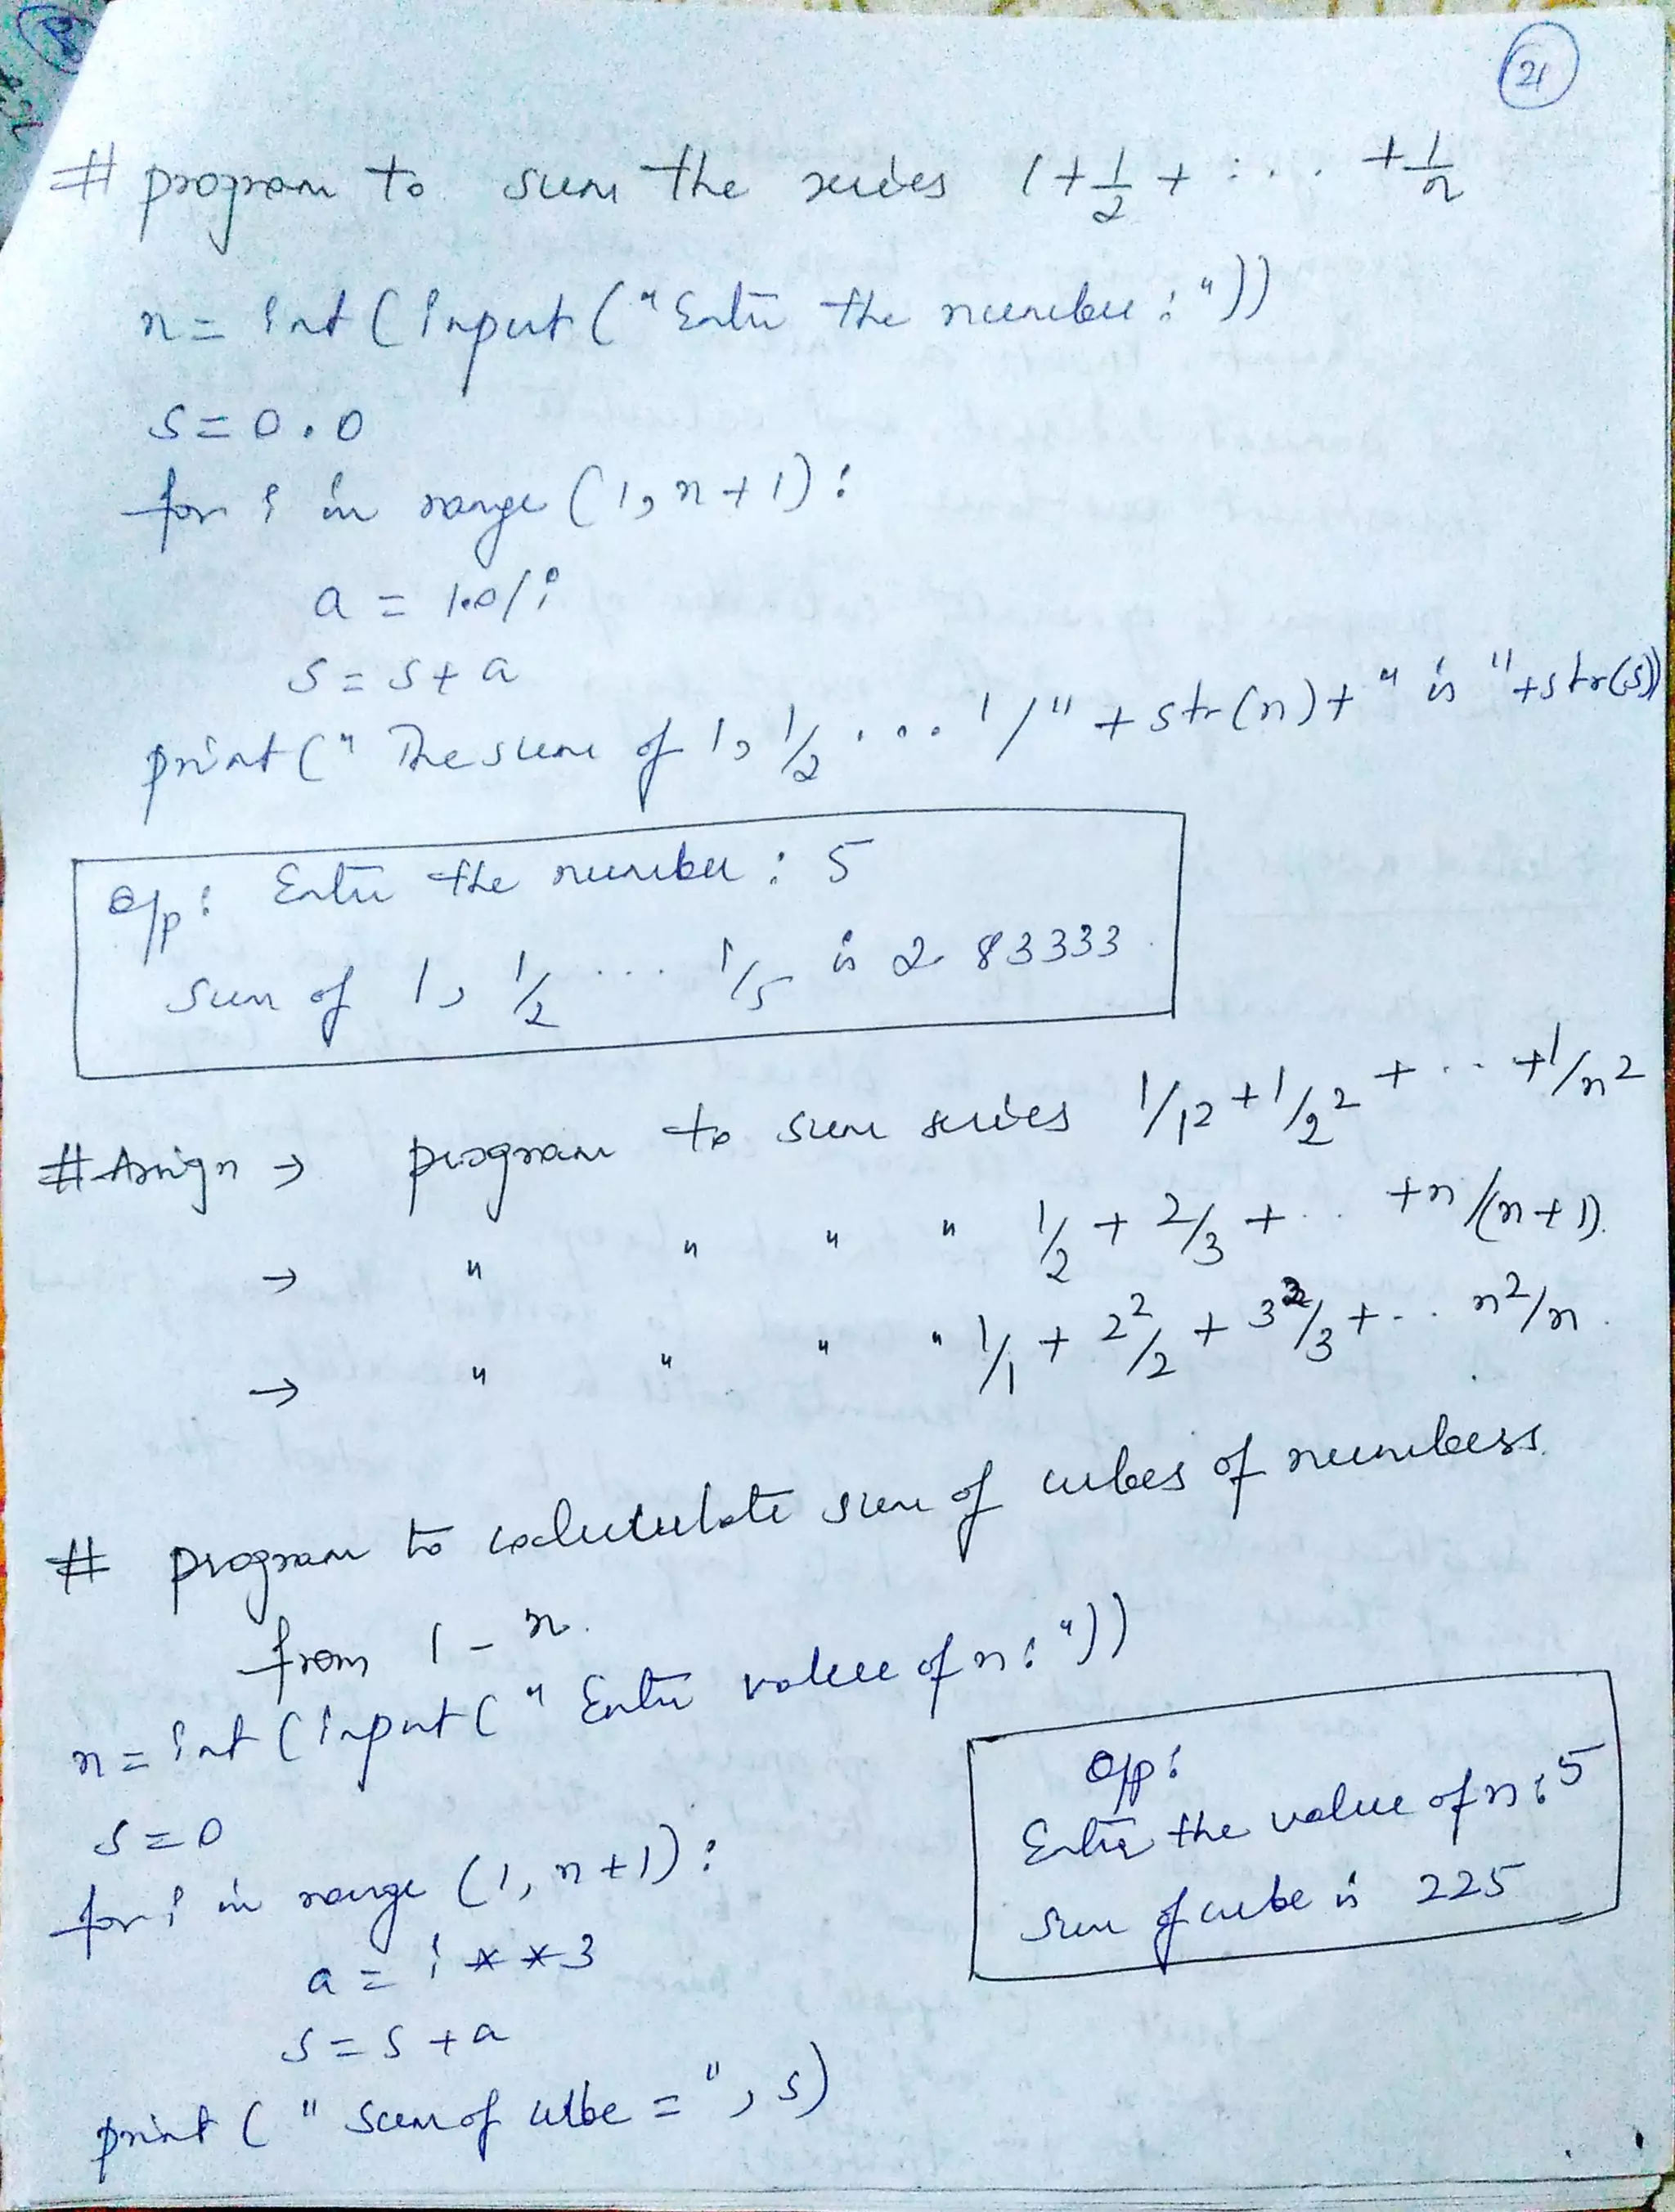 21
# program to sum the series 1 + 1/2 + ... + 1/n
n = int (input ("Enter the number : "))
s = 0.0
for i in range (1, n+1) :
a = 1.0/i
s = s + a
print (" The sum of 1, 1/2 .... 1/" + str(n) + " is " + str(s))
O/p : Enter the number : 5
Sum of 1, 1/2 .... 1/5 is 2.83333
# Assign → program to sum series 1/1² + 1/2² + ... + 1/n²
→ " " " " 1/2 + 2/3 + ... + n/(n+1).
→ " " " " 1/1 + 2²/2 + 3²/3 + ... n²/n.
# program to calcutulate sum of cubes of numbers
from 1 - n.
n = int (input (" Enter value of n : "))
s = 0
for i in range (1, n+1) :
a = i **3
s = s + a
print ( " Sum of cube = ", s)
O/p :
Enter the value of n : 5
Sum of cube is 225